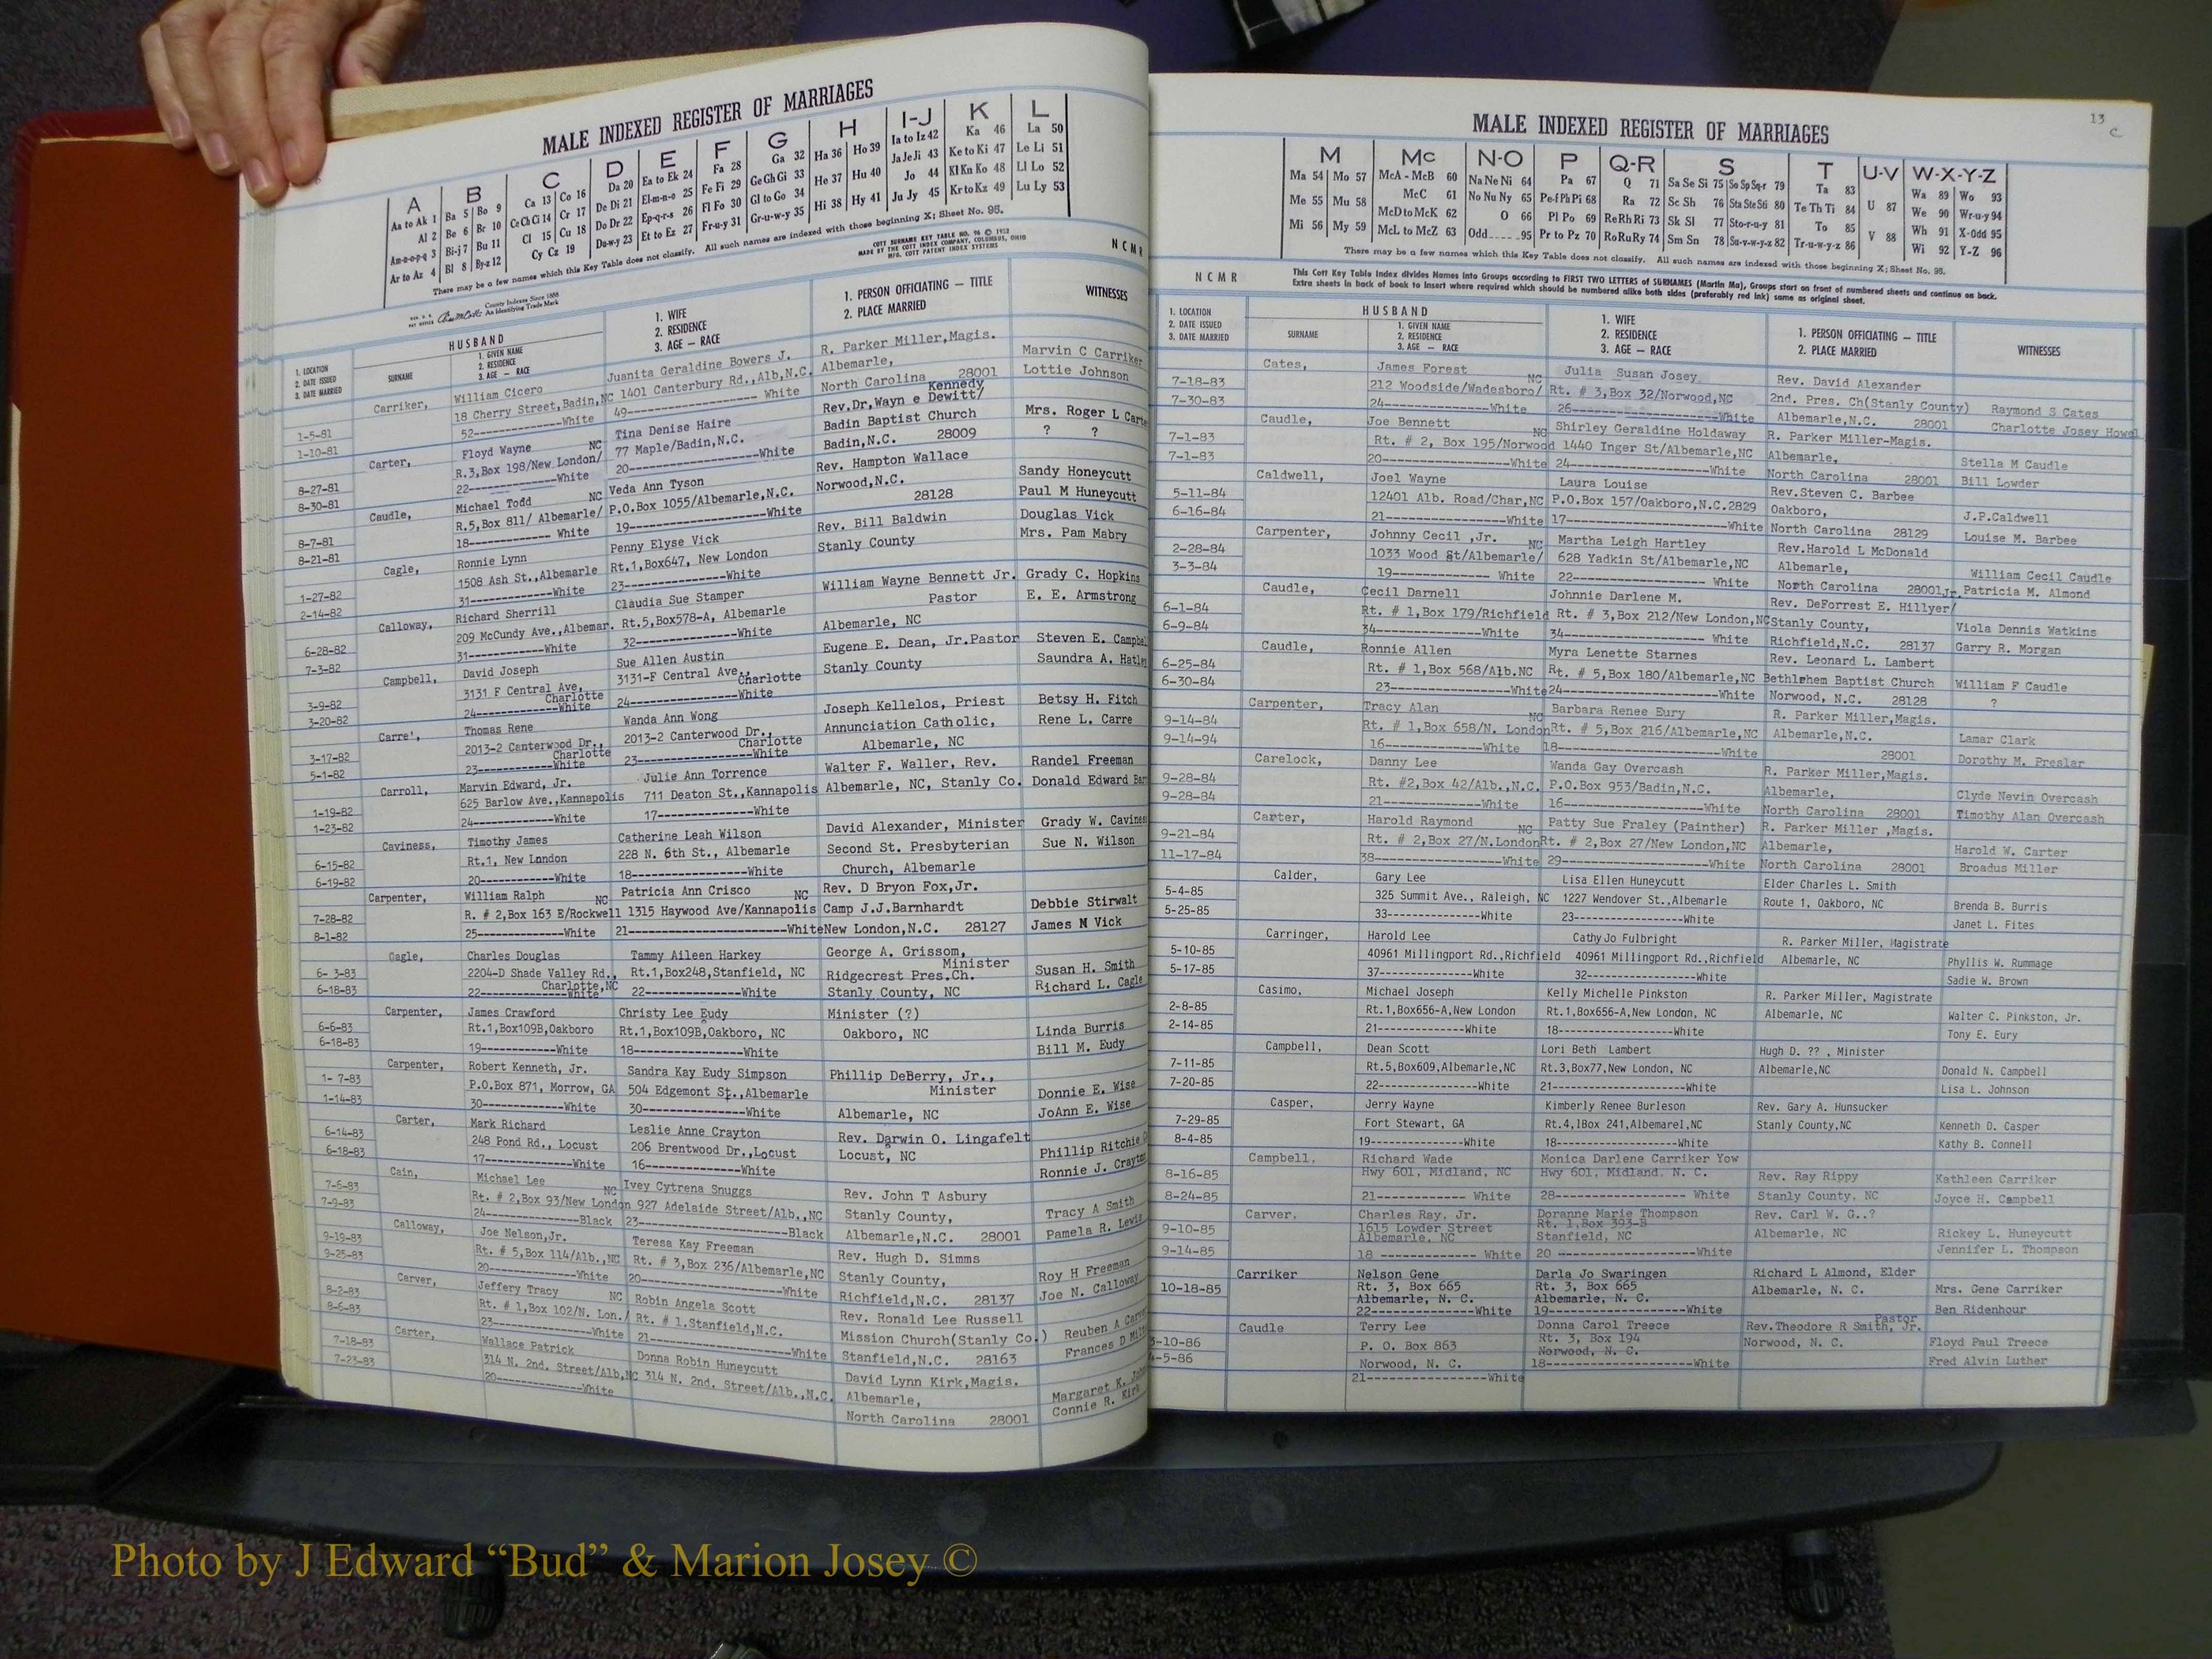 MALE INDEXED REGISTER OF MARRIAGES
A B C D E F G H I-J K L
Aa to Ak 1 Ba 5 Bo 9 Ca 13 Co 16 Da 20 Ea to Ek 24 Fa 28 Ga 32 Ha 36 Ho 39 Ia to Iz 42 Ka 46 La 50
Al 2 Be 6 Br 10 Ce Ch Ci 14 Cr 17 De Di 21 El-m-n-o 25 Fe Fi 29 Ge Gh Gi 33 He 37 Hu 40 Ja Je Ji 43 Ke to Ki 47 Le Li 51
Am-n-o-p-q 3 Bi-j 7 Bu 11 Cl 15 Cu 18 Do Dr 22 Ep-q-r-s 26 Fl Fo 30 Gl to Go 34 Hi 38 Hy 41 Jo 44 Kl Kn Ko 48 Ll Lo 52
Ar to Az 4 Bl 8 By-z 12 Cy Cz 19 Du-w-y 23 Et to Ez 27 Fr-u-y 31 Gr-u-w-y 35 Ju Jy 45 Kr to Kz 49 Lu Ly 53
There may be a few names which this Key Table does not classify. All such names are indexed with those beginning X; Sheet No. 95.
County Indexes Since 1888
An Identifying Trade Mark
COTT SURNAME KEY TABLE NO. 96 © 1952
MADE BY THE COTT INDEX COMPANY, COLUMBUS, OHIO
MFG. COTT PATENT INDEX SYSTEMS
N C M R
1. LOCATION
2. DATE ISSUED
3. DATE MARRIED
HUSBAND
SURNAME
1. GIVEN NAME
2. RESIDENCE
3. AGE — RACE
1. WIFE
2. RESIDENCE
3. AGE — RACE
1. PERSON OFFICIATING — TITLE
2. PLACE MARRIED
WITNESSES
Carriker, William Cicero Juanita Geraldine Bowers J. R. Parker Miller,Magis. Marvin C Carriker
1-5-81 18 Cherry Street,Badin,NC 1401 Canterbury Rd.,Alb,N.C. Albemarle, Lottie Johnson
1-10-81 52--------White 49--------White North Carolina 28001
Carter, Floyd Wayne NC Tina Denise Haire Rev.Dr,Wayn e Dewitt/ Kennedy Mrs. Roger L Carte
8-27-81 R.3,Box 198/New London/ 77 Maple/Badin,N.C. Badin Baptist Church ? ?
8-30-81 22--------White 20--------White Badin,N.C. 28009
Caudle, Michael Todd NC Veda Ann Tyson Rev. Hampton Wallace Sandy Honeycutt
8-7-81 R.5,Box 811/ Albemarle/ P.O.Box 1055/Albemarle,N.C. Norwood,N.C. Paul M Huneycutt
8-21-81 18-------- White 19--------White 28128
Cagle, Ronnie Lynn Penny Elyse Vick Rev. Bill Baldwin Douglas Vick
1-27-82 1508 Ash St.,Albemarle Rt.1,Box647, New London Stanly County Mrs. Pam Mabry
2-14-82 31--------White 23--------White
Calloway, Richard Sherrill Claudia Sue Stamper William Wayne Bennett Jr. Grady C. Hopkins
6-28-82 209 McCundy Ave.,Albemar. Rt.5,Box578-A, Albemarle Pastor E. E. Armstrong
7-3-82 31--------White 32--------White Albemarle, NC
Campbell, David Joseph Sue Allen Austin Eugene E. Dean, Jr.Pastor Steven E. Campbel
3-9-82 3131 F Central Ave, Charlotte 3131-F Central Ave., Charlotte Stanly County Saundra A. Hatley
3-20-82 24--------White 24--------White
Carre', Thomas Rene Wanda Ann Wong Joseph Kellelos, Priest Betsy H. Fitch
3-17-82 2013-2 Canterwood Dr., Charlotte 2013-2 Canterwood Dr., Charlotte Annunciation Catholic, Rene L. Carre
5-1-82 23--------White 23--------White Albemarle, NC
Carroll, Marvin Edward, Jr. Julie Ann Torrence Walter F. Waller, Rev. Randel Freeman
1-19-82 625 Barlow Ave.,Kannapolis 711 Deaton St.,Kannapolis Albemarle, NC, Stanly Co. Donald Edward Bar
1-23-82 24--------White 17--------White
Caviness, Timothy James Catherine Leah Wilson David Alexander, Minister Grady W. Cavines
6-15-82 Rt.1, New London 228 N. 6th St., Albemarle Second St. Presbyterian Sue N. Wilson
6-19-82 20--------White 18--------White Church, Albemarle
Carpenter, William Ralph NC Patricia Ann Crisco NC Rev. D Bryon Fox,Jr.
7-28-82 R. # 2,Box 163 E/Rockwell 1315 Haywood Ave/Kannapolis Camp J.J.Barnhardt Debbie Stirwalt
8-1-82 25--------White 21--------White New London,N.C. 28127 James M Vick
Cagle, Charles Douglas Tammy Aileen Harkey George A. Grissom, Minister
6- 3-83 2204-D Shade Valley Rd., Charlotte,NC Rt.1,Box248,Stanfield, NC Ridgecrest Pres.Ch. Susan H. Smith
6-18-83 22--------White 22--------White Stanly County, NC Richard L. Cagle
Carpenter, James Crawford Christy Lee Eudy Minister (?)
6-6-83 Rt.1,Box109B,Oakboro Rt.1,Box109B,Oakboro, NC Oakboro, NC Linda Burris
6-18-83 19--------White 18--------White Bill M. Eudy
Carpenter, Robert Kenneth, Jr. Sandra Kay Eudy Simpson Phillip DeBerry, Jr.,
1- 7-83 P.O.Box 871, Morrow, GA 504 Edgemont St.,Albemarle Minister Donnie E. Wise
1-14-83 30--------White 30--------White Albemarle, NC JoAnn E. Wise
Carter, Mark Richard Leslie Anne Crayton Rev. Darwin O. Lingafelt
6-14-83 248 Pond Rd., Locust 206 Brentwood Dr.,Locust Locust, NC Phillip Ritchie
6-18-83 17--------White 16--------White Ronnie J. Crayton
Cain, Michael Lee NC Ivey Cytrena Snuggs Rev. John T Asbury
7-6-83 Rt. # 2,Box 93/New London 927 Adelaide Street/Alb.,NC Stanly County, Tracy A Smith
7-9-83 24--------Black 23--------Black Albemarle,N.C. 28001 Pamela R. Lewis
Calloway, Joe Nelson,Jr. Teresa Kay Freeman Rev. Hugh D. Simms
9-19-83 Rt. # 5,Box 114/Alb.,NC Rt. # 3,Box 236/Albemarle,NC Stanly County, Roy H Freeman
9-25-83 20--------White 20--------White Richfield,N.C. 28137 Joe N. Calloway
Carver, Jeffery Tracy NC Robin Angela Scott Rev. Ronald Lee Russell
8-2-83 Rt. # 1,Box 102/N. Lon./ Rt. # 1.Stanfield,N.C. Mission Church(Stanly Co.) Reuben A Carver
8-6-83 23--------White 21--------White Stanfield,N.C. 28163 Frances D
Carter, Wallace Patrick Donna Robin Huneycutt David Lynn Kirk,Magis.
7-18-83 314 N. 2nd. Street/Alb,NC 314 N. 2nd. Street/Alb.,N.C. Albemarle, Margaret K.
7-23-83 20--------White North Carolina 28001 Connie R. Kirk
13
C
MALE INDEXED REGISTER OF MARRIAGES
M Mc N-O P Q-R S T U-V W-X-Y-Z
Ma 54 Mo 57 McA - McB 60 Na Ne Ni 64 Pa 67 Q 71 Sa Se Si 75 So Sp Sq-r 79 Ta 83 U 87 Wa 89 Wo 93
Me 55 Mu 58 McC 61 No Nu Ny 65 Pe-f Ph Pi 68 Ra 72 Sc Sh 76 Sta Ste Sti 80 Te Th Ti 84 V 88 We 90 Wr-u-y 94
Mi 56 My 59 McD to McK 62 O 66 Pl Po 69 Re Rh Ri 73 Sk Sl 77 Sto-r-u-y 81 To 85 Wh 91 X-Odd 95
McL to McZ 63 Odd 95 Pr to Pz 70 Ro Ru Ry 74 Sm Sn 78 Su-v-w-y-z 82 Tr-u-w-y-z 86 Wi 92 Y-Z 96
There may be a few names which this Key Table does not classify. All such names are indexed with those beginning X; Sheet No. 95.
N C M R
This Cott Key Table Index divides Names into Groups according to FIRST TWO LETTERS of SURNAMES (Martin Ma), Groups start on front of numbered sheets and continue on back.
Extra sheets in back of book to insert where required which should be numbered alike both sides (preferably red ink) same as original sheet.
1. LOCATION
2. DATE ISSUED
3. DATE MARRIED
HUSBAND
SURNAME
1. GIVEN NAME
2. RESIDENCE
3. AGE — RACE
1. WIFE
2. RESIDENCE
3. AGE — RACE
1. PERSON OFFICIATING — TITLE
2. PLACE MARRIED
WITNESSES
Cates, James Forest NC Julia Susan Josey Rev. David Alexander
7-18-83 212 Woodside/Wadesboro/ Rt. # 3,Box 32/Norwood,NC 2nd. Pres. Ch(Stanly County) Raymond S Cates
7-30-83 24--------White 26--------White Albemarle,N.C. 28001 Charlotte Josey Howel
Caudle, Joe Bennett NC Shirley Geraldine Holdaway R. Parker Miller-Magis.
7-1-83 Rt. # 2, Box 195/Norwood 1440 Inger St/Albemarle,NC Albemarle, Stella M Caudle
7-1-83 20--------White 24--------White North Carolina 28001 Bill Lowder
Caldwell, Joel Wayne Laura Louise Rev.Steven C. Barbee
5-11-84 12401 Alb. Road/Char,NC P.O.Box 157/Oakboro,N.C.2829 Oakboro, J.P.Caldwell
6-16-84 21--------White 17--------White North Carolina 28129 Louise M. Barbee
Carpenter, Johnny Cecil ,Jr. NC Martha Leigh Hartley Rev.Harold L McDonald
2-28-84 1033 Wood St/Albemarle/ 628 Yadkin St/Albemarle,NC Albemarle, William Cecil Caudle
3-3-84 19-------- White 22-------- White North Carolina 28001 Patricia M. Almond
Caudle, Cecil Darnell Johnnie Darlene M. Rev. DeForrest E. Hillyer/Jr.
6-1-84 Rt. # 1,Box 179/Richfield Rt. # 3,Box 212/New London,NC Stanly County, Viola Dennis Watkins
6-9-84 34--------White 34-------- White Richfield,N.C. 28137 Garry R. Morgan
Caudle, Ronnie Allen Myra Lenette Starnes Rev. Leonard L. Lambert
6-25-84 Rt. # 1,Box 568/Alb.NC Rt. # 5,Box 180/Albemarle,NC Bethlehem Baptist Church William F Caudle
6-30-84 23--------White 24--------White Norwood, N.C. 28128 ?
Carpenter, Tracy Alan NC Barbara Renee Eury R. Parker Miller,Magis.
9-14-84 Rt. # 1,Box 658/N. London Rt. # 5,Box 216/Albemarle,NC Albemarle,N.C. Lamar Clark
9-14-94 16--------White 18--------White 28001 Dorothy M. Preslar
Carelock, Danny Lee Wanda Gay Overcash R. Parker Miller,Magis.
9-28-84 Rt. #2,Box 42/Alb.,N.C. P.O.Box 953/Badin,N.C. Albemarle, Clyde Nevin Overcash
9-28-84 21--------White 16--------White North Carolina 28001 Timothy Alan Overcash
Carter, Harold Raymond NC Patty Sue Fraley (Painther) R. Parker Miller ,Magis.
9-21-84 Rt. # 2,Box 27/N.London Rt. # 2,Box 27/New London,NC Albemarle, Harold W. Carter
11-17-84 38--------White 29--------White North Carolina 28001 Broadus Miller
Calder, Gary Lee Lisa Ellen Huneycutt Elder Charles L. Smith
5-4-85 325 Summit Ave., Raleigh, NC 1227 Wendover St.,Albemarle Route 1, Oakboro, NC Brenda B. Burris
5-25-85 33--------White 23--------White Janet L. Fites
Carringer, Harold Lee Cathy Jo Fulbright R. Parker Miller, Magistrate
5-10-85 40961 Millingport Rd.,Richfield 40961 Millingport Rd.,Richfield Albemarle, NC Phyllis W. Rummage
5-17-85 37--------White 32--------White Sadie W. Brown
Casimo, Michael Joseph Kelly Michelle Pinkston R. Parker Miller, Magistrate
2-8-85 Rt.1,Box656-A,New London Rt.1,Box656-A,New London, NC Albemarle, NC Walter C. Pinkston, Jr.
2-14-85 21--------White 18--------White Tony E. Eury
Campbell, Dean Scott Lori Beth Lambert Hugh D. ?? , Minister
7-11-85 Rt.5,Box609,Albemarle,NC Rt.3,Box77,New London, NC Albemarle,NC Donald N. Campbell
7-20-85 22--------White 21--------White Lisa L. Johnson
Casper, Jerry Wayne Kimberly Renee Burleson Rev. Gary A. Hunsucker
7-29-85 Fort Stewart, GA Rt.4,lBox 241,Albemarel,NC Stanly County,NC Kenneth D. Casper
8-4-85 19--------White 18--------White Kathy B. Connell
Campbell, Richard Wade Monica Darlene Carriker Yow
8-16-85 Hwy 601, Midland, NC Hwy 601, Midland, N. C. Rev. Ray Rippy Kathleen Carriker
8-24-85 21-------- White 28-------- White Stanly County, NC Joyce H. Campbell
Carver, Charles Ray, Jr. Doranne Marie Thompson Rev. Carl W. G..?
9-10-85 1615 Lowder Street Rt. 1,Box 393-B Albemarle, NC Rickey L. Huneycutt
Albemarle, NC Stanfield, NC
9-14-85 18 -------- White 20 --------White Jennifer L. Thompson
Carriker Nelson Gene Darla Jo Swaringen Richard L Almond, Elder
10-18-85 Rt. 3, Box 665 Rt. 3, Box 665 Albemarle, N. C. Mrs. Gene Carriker
Albemarle, N. C. Albemarle, N. C.
22--------White 19--------White Ben Ridenhour
Caudle Terry Lee Donna Carol Treece Rev.Theodore R Smith, Jr. Pastor
3-10-86 P. O. Box 863 Rt. 3, Box 194 Norwood, N. C. Floyd Paul Treece
4-5-86 Norwood, N. C. Norwood, N. C. Fred Alvin Luther
21--------White 18--------White
Photo by J Edward “Bud” & Marion Josey ©